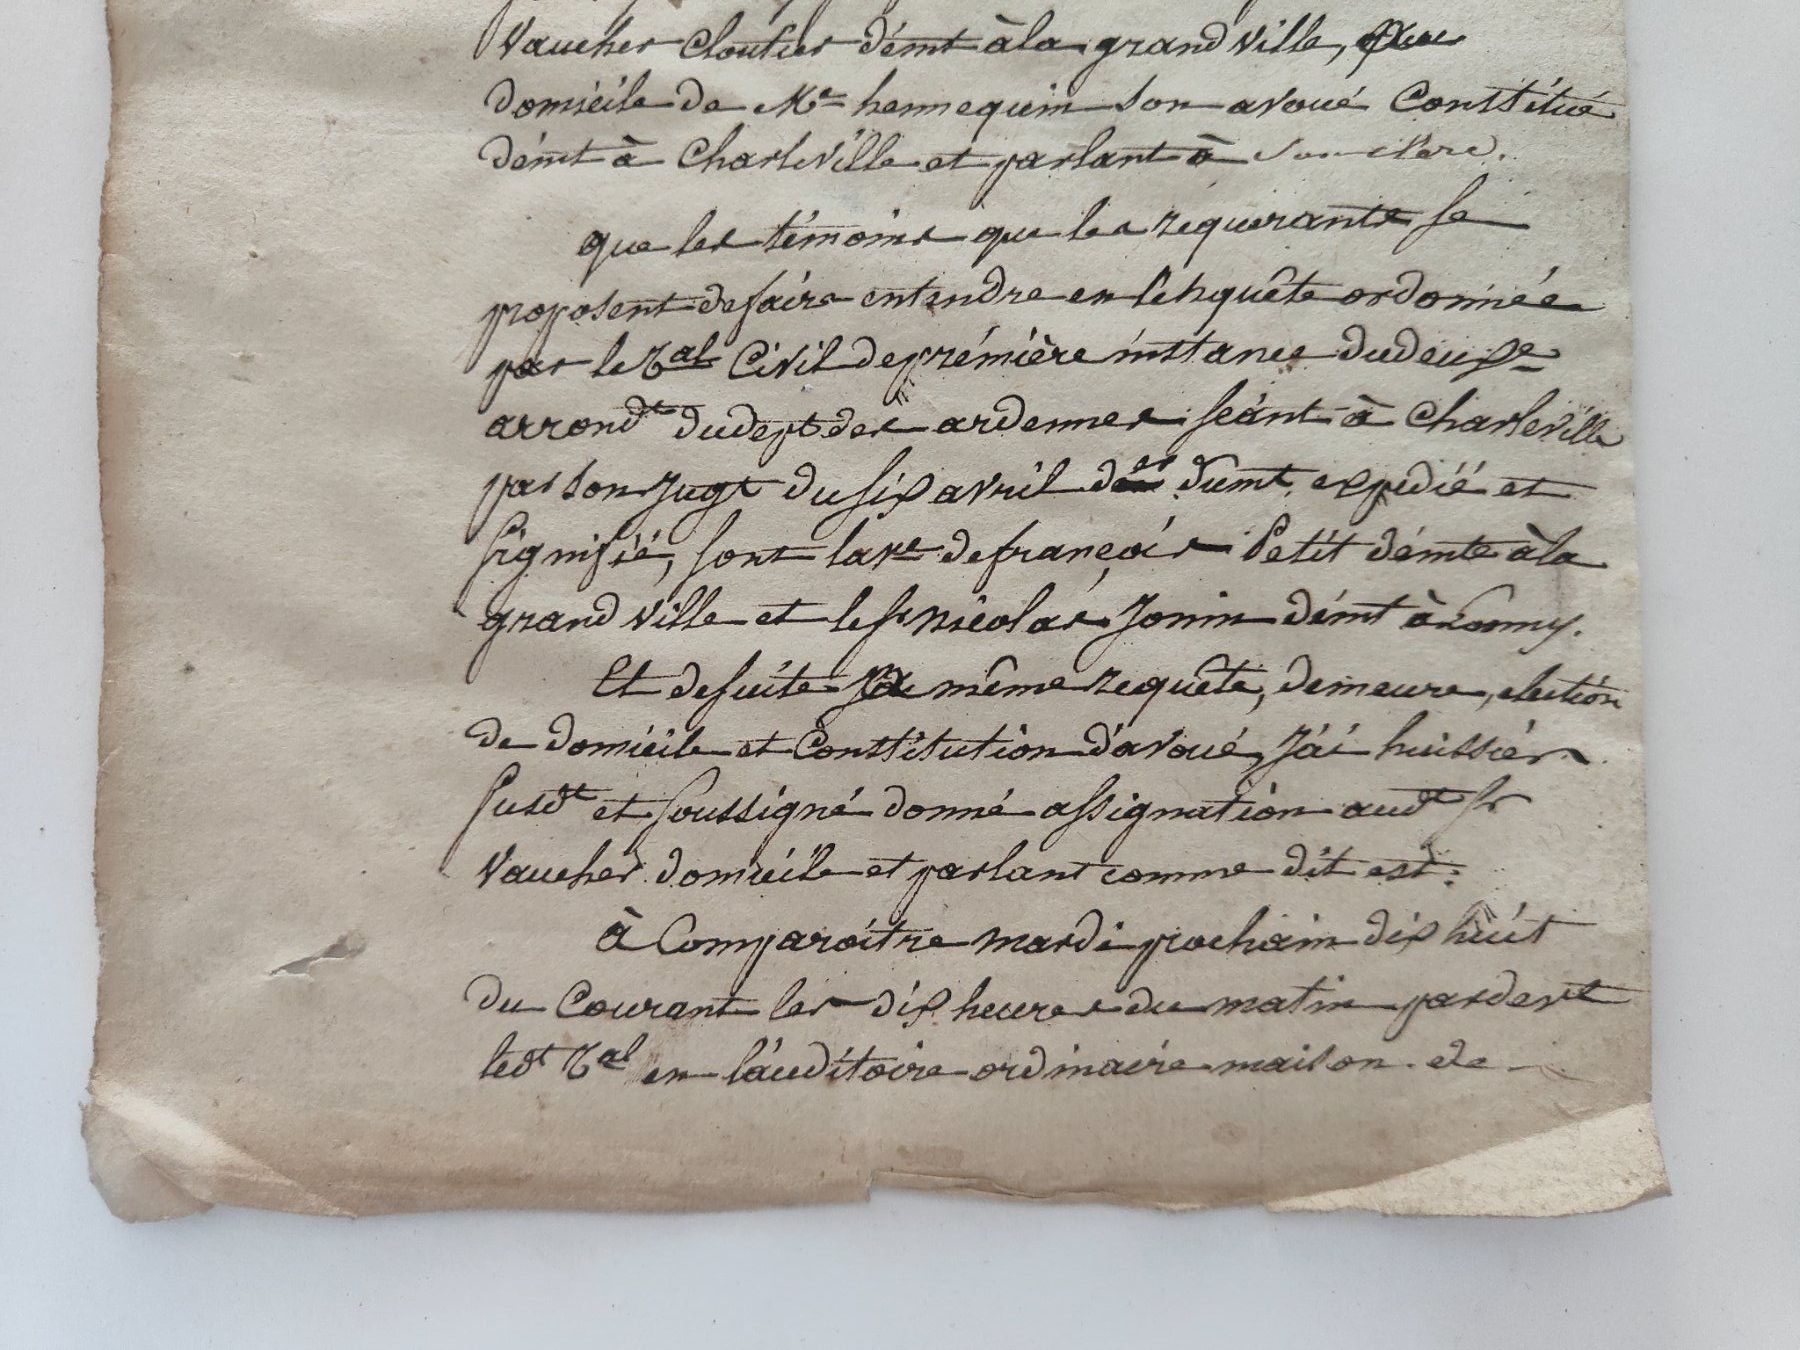 Vaucher Cloutier démt à la grandville, au
domicile de Me hennequin son avoué Constitué
démt à Charleville et parlant à son clerc.
que les témoins que les requerants se
proposent de faire entendre en l'enquête ordonnée
par le Tal Civil de prémière instance du deuxe
arrondt du dept des ardennes séant à Charleville
par son Jugt du six avril der dumt expedié et
signifié, sont la ve de françois Petit démte à la
grandville et le sr nicolas Jonin démt à Lonny.
Et de suite même requête, demeure, election
de domicile et Constitution d'avoué, J'ai huissier
susdt et soussigné donné assignation audt sr
Vaucher domicile et parlant comme dit est:
à Comparoitre mardi prochain dix huit
du Courant les dix heures du matin pardevt
ledt Tal en l'auditoire ordinaire maison de